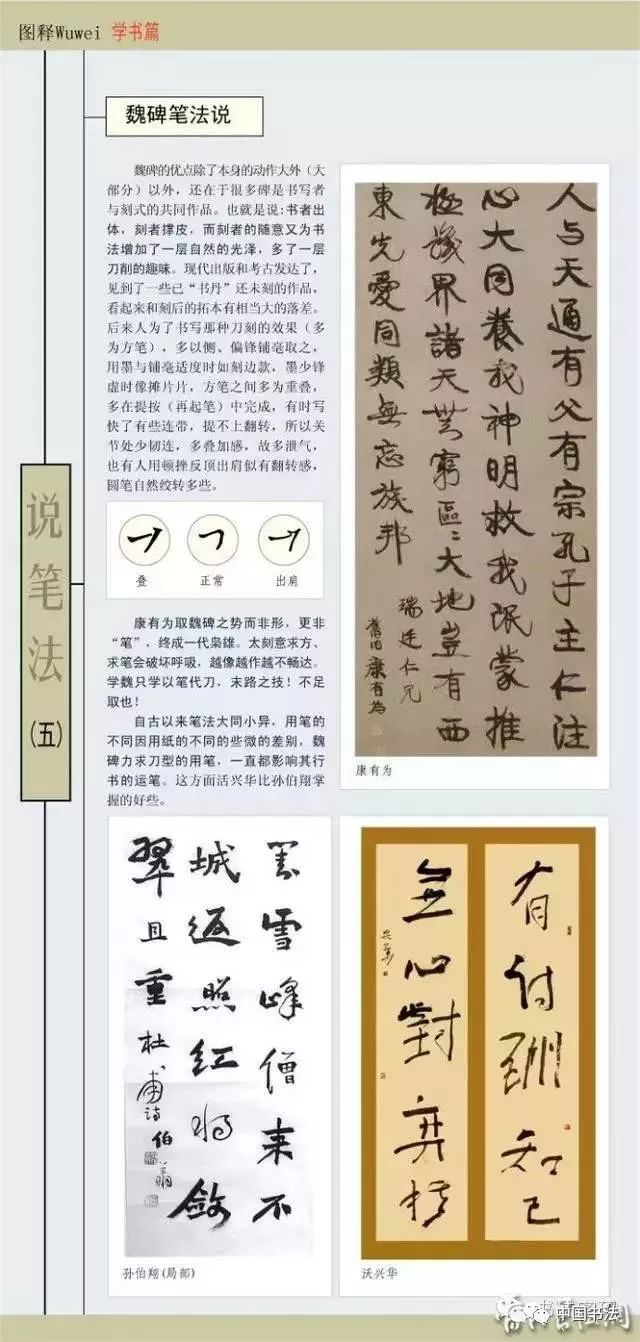 图释Wuwei 学书篇
魏碑笔法说
魏碑的优点除了本身的动作大外（大
部分）以外，还在于很多碑是书写者
与刻式的共同作品。也就是说:书者出
体，刻者撑皮，而刻者的随意又为书
法增加了一层自然的光泽，多了一层
刀削的趣味。现代出版和考古发达了，
见到了一些已“书丹”还未刻的作品，
看起来和刻后的拓本有相当大的落差。
后来人为了书写那种刀刻的效果（多
为方笔），多以侧、偏锋铺毫取之，
用墨与铺毫适度时如刻边款，墨少锋
虚时像摊片片，方笔之间多为重叠，
多在提按（再起笔）中完成，有时写
快了有些连带，提不上翻转，所以关
节处少韧连，多叠加感，故多泄气，
也有人用顿挫反顶出肩似有翻转感，
圆笔自然绞转多些。
叠 正常 出肩
康有为取魏碑之势而非形，更非
“笔”，终成一代枭雄。太刻意求方、
求笔会破坏呼吸，越像越作越不畅达。
学魏只学以笔代刀，末路之技！不足
取也！
自古以来笔法大同小异，用笔的
不同因用纸的不同的些微的差别，魏
碑力求刀型的用笔，一直都影响其行
书的运笔。这方面活兴华比孙伯翔掌
握的好些。
说笔法(五)
人与天通有父有宗孔子主仁注
心大同養我神明救我氓蒙推
極識界諸天無窮區二大地豈有西
東先愛同類無忘族邦
瑞廷仁兄
康有為
康有为
雪峰僧来不
城返照红将敛
翠且重杜甫诗伯翔
孙伯翔(局部)
有付酬知己
無心對弈棋
沃兴华
中国书法